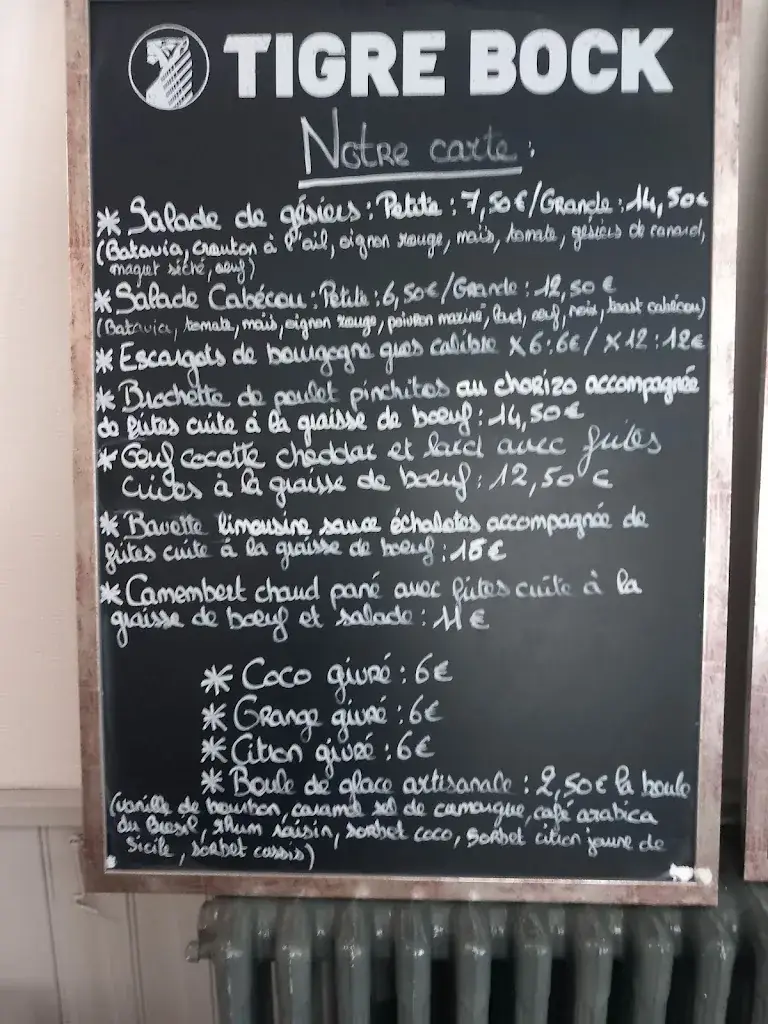 TIGRE BOCK
Notre carte :
* Salade de gésiers : Petite : 7,50€/Grande : 14,50€
(Batavia, crouton à l'ail, oignon rouge, maïs, tomate, gésiers de canard,
magret séché, oeuf)
* Salade Cabécou : Petite : 6,50€/Grande : 12,50 €
(Batavia, tomate, maïs, oignon rouge, poivron mariné, lard, oeuf, noix, toast cabécou)
* Escargots de bourgogne gros calibre x6 : 6€ / x12 : 12€
* Brochette de poulet pinchitos au chorizo accompagnée
de frites cuite à la graisse de boeuf : 14,50€
* Oeuf cocotte cheddar et lard avec frites
cuites à la graisse de boeuf : 12,50 €
* Bavette limousine sauce échalotes accompagnée de
frites cuite à la graisse de boeuf : 15€
* Camembert chaud pané avec frites cuite à la
graisse de boeuf et salade : 11€
* Coco givré : 6€
* Orange givré : 6€
* Citron givré : 6€
* Boule de glace artisanale : 2,50€ la boule
(vanille de bourbon, caramel sel de camargue, café arabica
du Bresil, rhum raisin, sorbet coco, sorbet citron jaune de
Sicile, sorbet cassis)